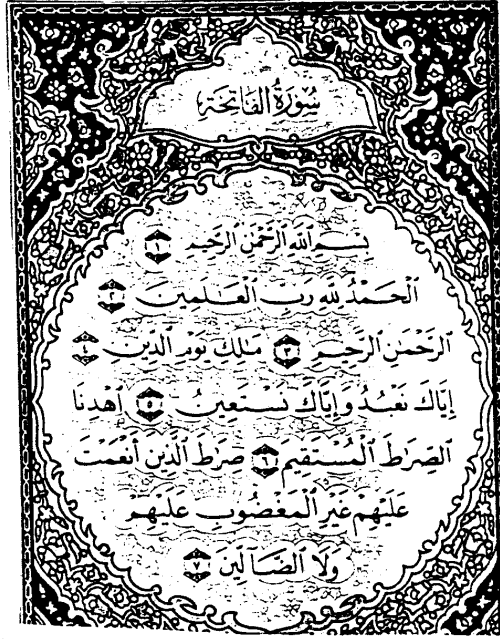 سُورَةُ الفَاتِحَة
بِسْمِ اللَّهِ الرَّحْمَٰنِ الرَّحِيمِ ١
الْحَمْدُ لِلَّهِ رَبِّ الْعَالَمِينَ ٢
الرَّحْمَٰنِ الرَّحِيمِ ٣ مَٰلِكِ يَوْمِ الدِّينِ ٤
إِيَّاكَ نَعْبُدُ وَإِيَّاكَ نَسْتَعِينُ ٥ اهْدِنَا
الصِّرَاطَ الْمُسْتَقِيمَ ٦ صِرَاطَ الَّذِينَ أَنْعَمْتَ
عَلَيْهِمْ غَيْرِ الْمَغْضُوبِ عَلَيْهِمْ
وَلَا الضَّآلِّينَ ٧